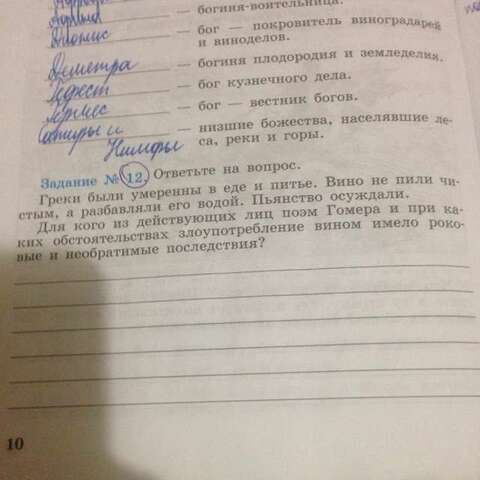 — богиня-воительница.
Дионис — бог — покровитель виноградарей
и виноделов.
Деметра — богиня плодородия и земледелия.
Гефест — бог кузнечного дела.
Гермес — бог — вестник богов.
Сатиры и — низшие божества, населявшие ле-
Нимфы са, реки и горы.
Задание № 12. Ответьте на вопрос.
Греки были умеренны в еде и питье. Вино не пили чи-
стым, а разбавляли его водой. Пьянство осуждали.
Для кого из действующих лиц поэм Гомера и при ка-
ких обстоятельствах злоупотребление вином имело роко-
вые и необратимые последствия?
10